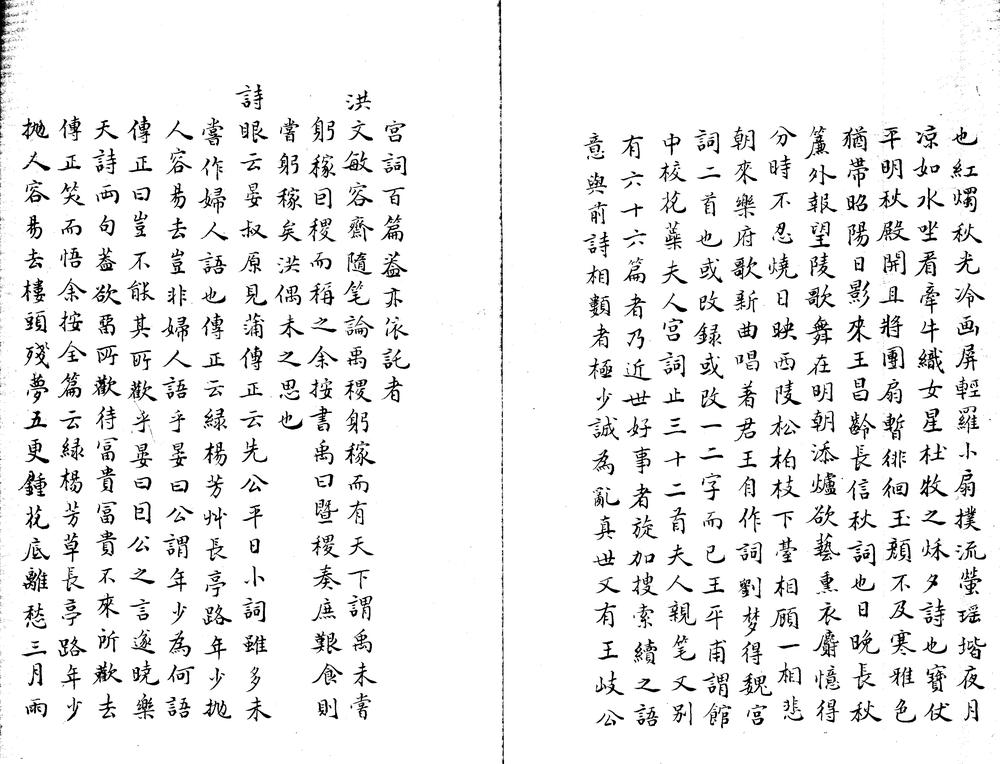 也紅燭秋光冷画屏輕羅小扇撲流螢瑶堦夜月
凉如水坐看牽牛織女星杜牧之秌夕詩也寳伏
平明秋殿開且將團扇暫徘徊玉顔不及寒雅色
猶帶昭陽日影來王昌齡長信秋詞也日晩長秋
簾外報望陵歌舞在明朝添爐欲藝熏衣麝憶得
分時不忍燒日映西陵松柏枝下䑓相顧一相悲
朝來樂府歌新曲唱著君王自作詞劉梦得魏宮
詞二首也或改録或改一二字而已王平甫謂館
中校花蘂夫人宮詞止三十二首夫人親笔又别
有六十六篇者乃近世好事者旋加搜索續之語
意與前詩相類者極少誠為亂真世又有王岐公
宮詞百篇葢亦依託者
洪文敏容齋隨笔論禹稷躬稼而有天下謂禹未嘗
躬稼因稷而稱之余按書禹曰曁稷奏庶艱食則
嘗躬稼矣洪偶未之思也
詩眼云晏叔原見蒲傳正云先公平日小詞雖多未
嘗作婦人語也傳正云緑楊芳艸長亭路年少抛
人容易去豈非婦人語乎晏曰公謂年少為何語
傳正曰豈不能其所歡乎晏曰因公之言遂曉樂
天詩兩句葢欲留所歡待冨貴冨貴不來所歡去
傳正笑而悟余按全篇云緑楊芳草長亭路年少
抛人容易去樓頭殘夢五更鍾花底離愁三月雨